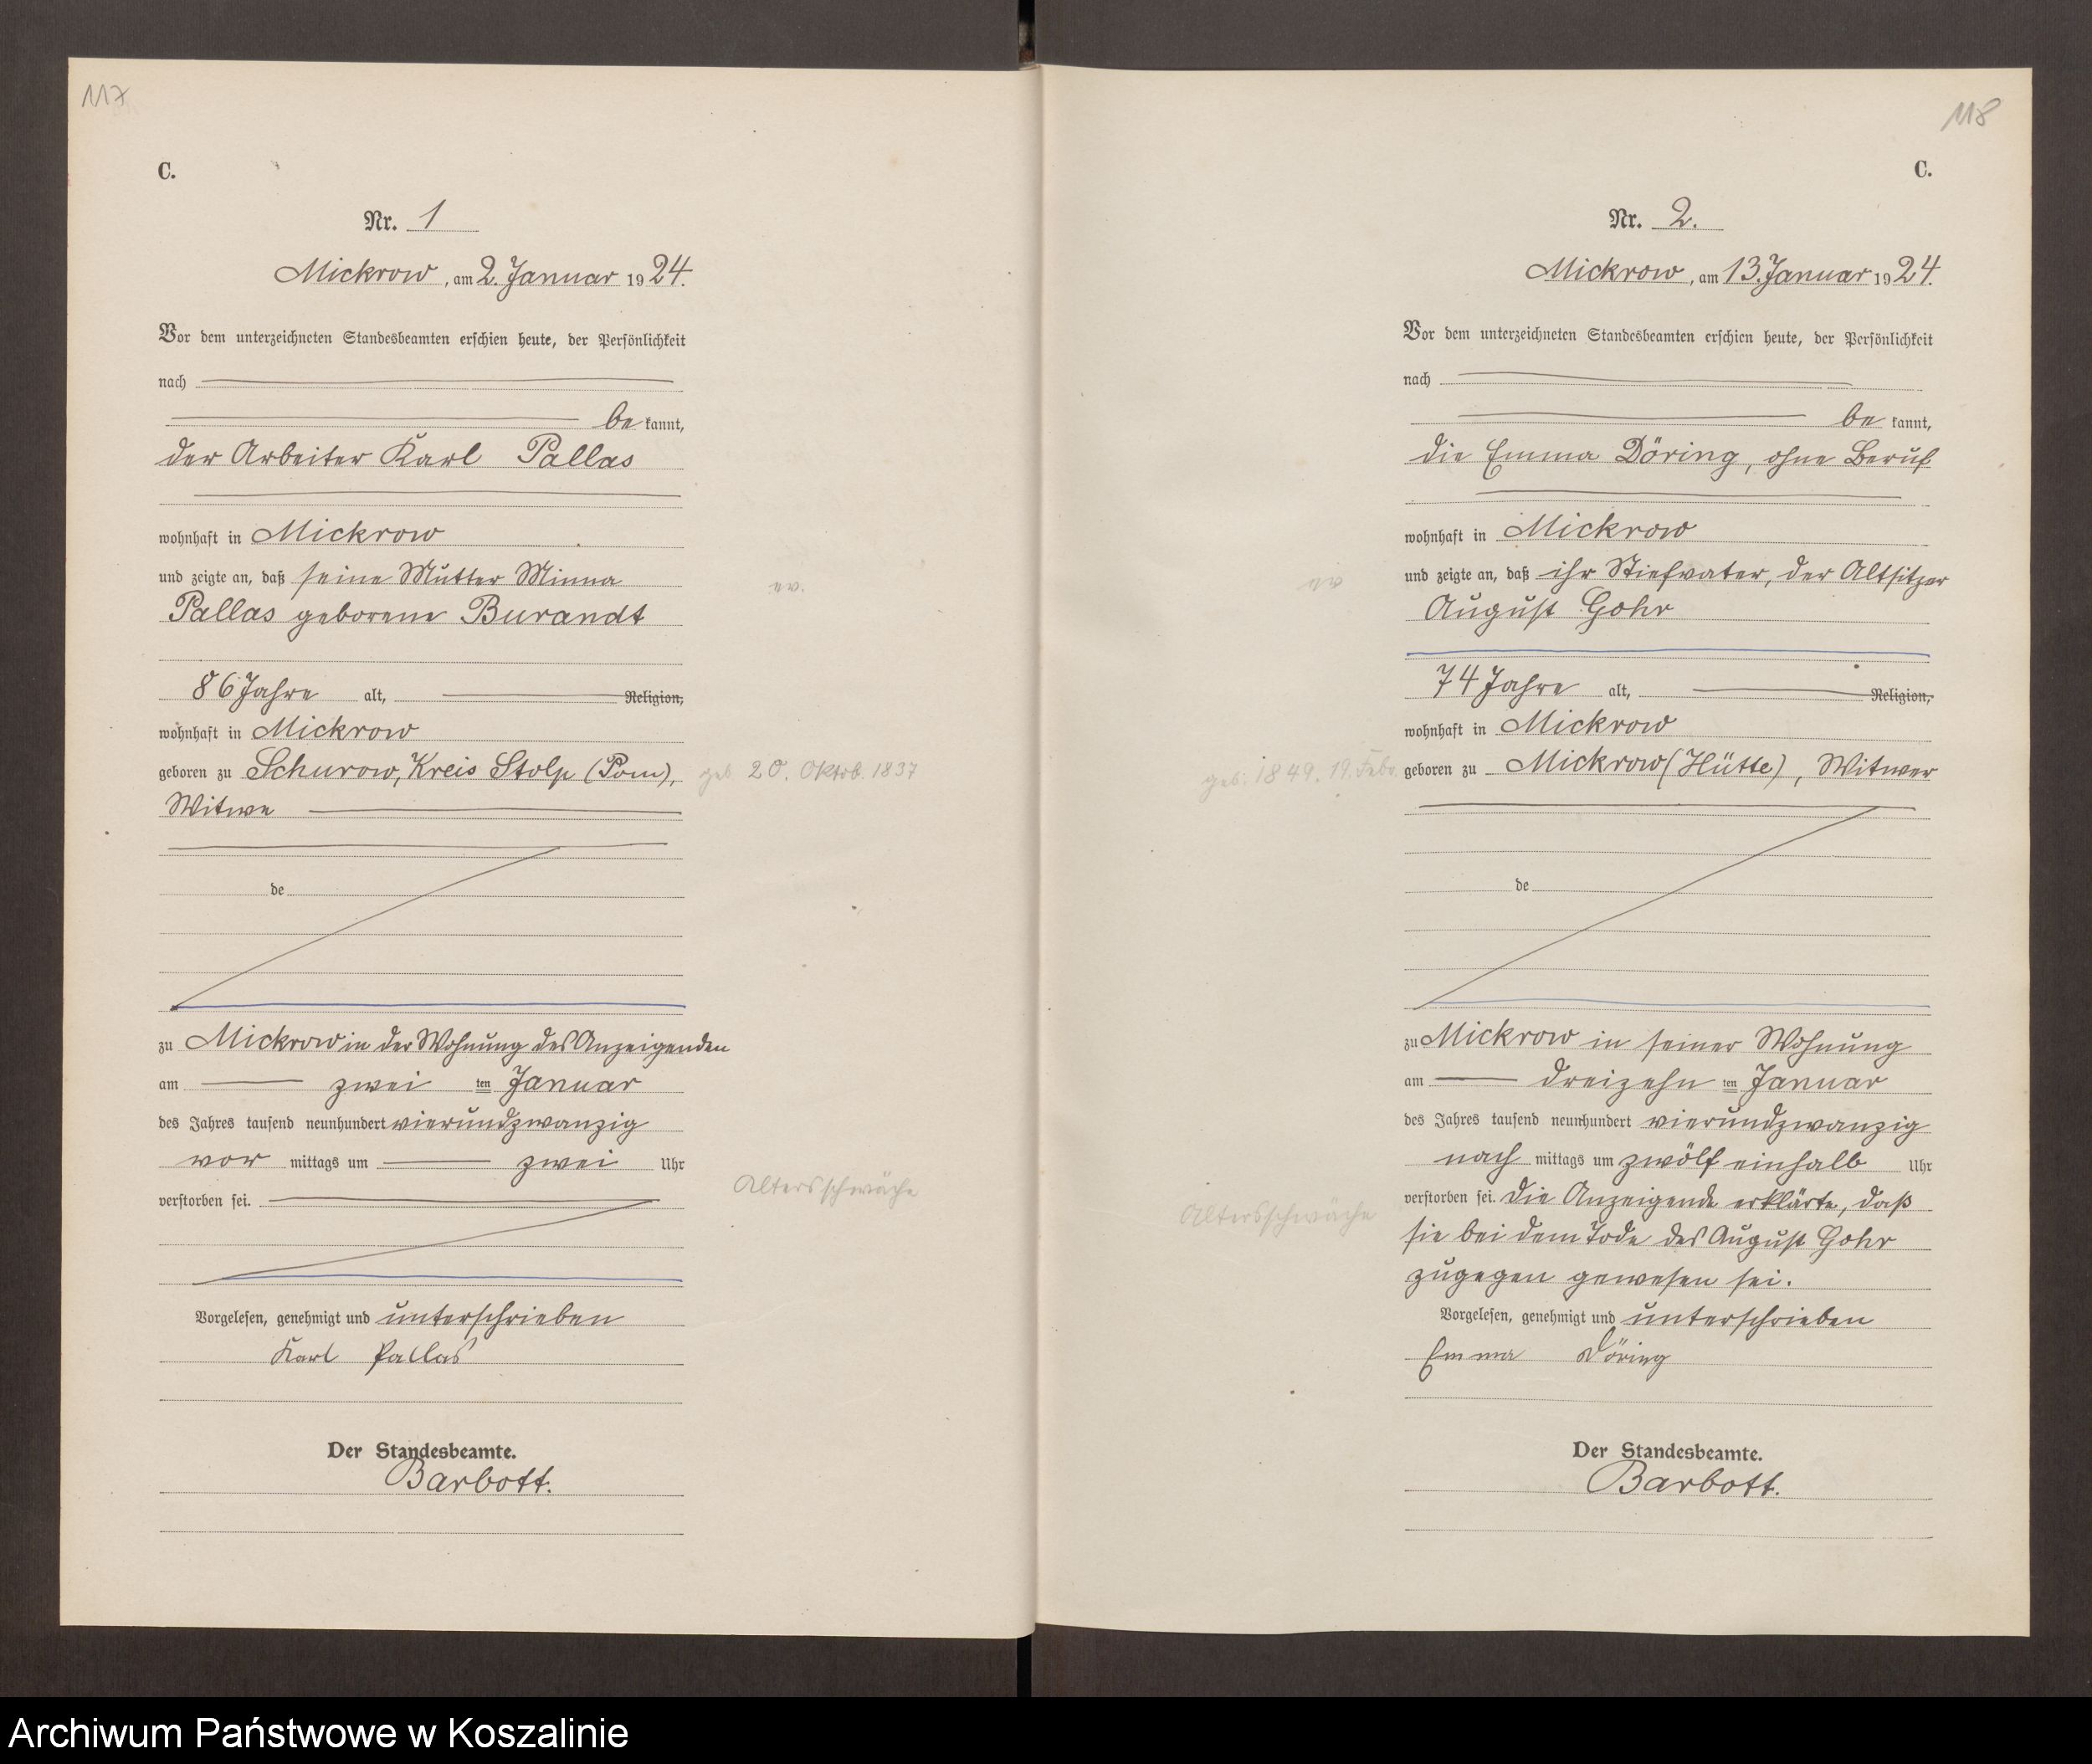 117
C.
Nr. 1
Mickrow, am 2. Januar 1924.
Vor dem unterzeichneten Standesbeamten erschien heute, der Persönlichkeit
nach
be kannt,
der Arbeiter Karl Pallas
wohnhaft in Mickrow
und zeigte an, daß seine Mutter Minna
ev.
Pallas geborene Burandt
86 Jahre alt, Religion,
wohnhaft in Mickrow
geboren zu Schurow, Kreis Stolp (Pom), geb 20. Oktob. 1837
Witwe
de
zu Mickrow in der Wohnung des Anzeigenden
am zwei ten Januar
des Jahres tausend neunhundert vierundzwanzig
vor mittags um zwei Uhr
Altersschwäche
verstorben sei.
Vorgelesen, genehmigt und unterschrieben
Karl Pallas
Der Standesbeamte.
Barbott.
118
C.
Nr. 2.
Mickrow, am 13. Januar 1924.
Vor dem unterzeichneten Standesbeamten erschien heute, der Persönlichkeit
nach
be kannt,
die Emma Döring, ohne Beruf
wohnhaft in Mickrow
ev
und zeigte an, daß ihr Stiefvater, der Altsitzer
August Gohr
74 Jahre alt, Religion,
wohnhaft in Mickrow
geb. 1849. 19. Febr. geboren zu Mickrow (Hütte), Witwer
de
zu Mickrow in seiner Wohnung
am dreizehn ten Januar
des Jahres tausend neunhundert vierundzwanzig
nach mittags um zwölf einhalb Uhr
verstorben sei. Die Anzeigende erklärte, daß
Altersschwäche
sie bei dem Tode des August Gohr
zugegen gewesen sei.
Vorgelesen, genehmigt und unterschrieben
Emma Döring
Der Standesbeamte.
Barbott.
Archiwum Państwowe w Koszalinie